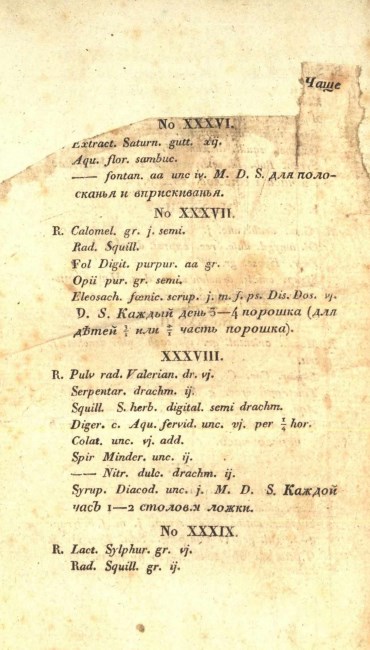 Чаще
No XXXVI.
Extract. Saturn. gutt. xv.
Aqu. flor. sambuc.
—— fontan. aa unc iv. M. D. S. для поло-
сканья и вприскиванья.
No XXXVII.
R. Calomel. gr. j. semi.
Rad. Squill.
Fol Digit. purpur. aa gr.
Opii pur. gr. semi.
Eleosach. fœnic. scrup. j. m. f. ps. Dis. Dos. vj.
D. S. Каждый день 3—4 порошка (для
дѣтей ½ или порошка).
XXXVIII.
R. Pulv rad. Valerian. dr. vj.
Serpentar. drachm. ij.
Squill. S. herb. digital. semi drachm.
Diger. c. Aqu. fervid. unc. vj. per ¼ hor.
Colat. unc. vj. add.
Spir Minder. unc. ij.
—— Nitr. dulc. drachm. ij.
Syrup. Diacod. unc. j. M. D. S. Каждой
часъ 1—2 столов.м ложки.
No XXXIX.
R. Lact. Sylphur. gr. vj.
Rad. Squill. gr. ij.